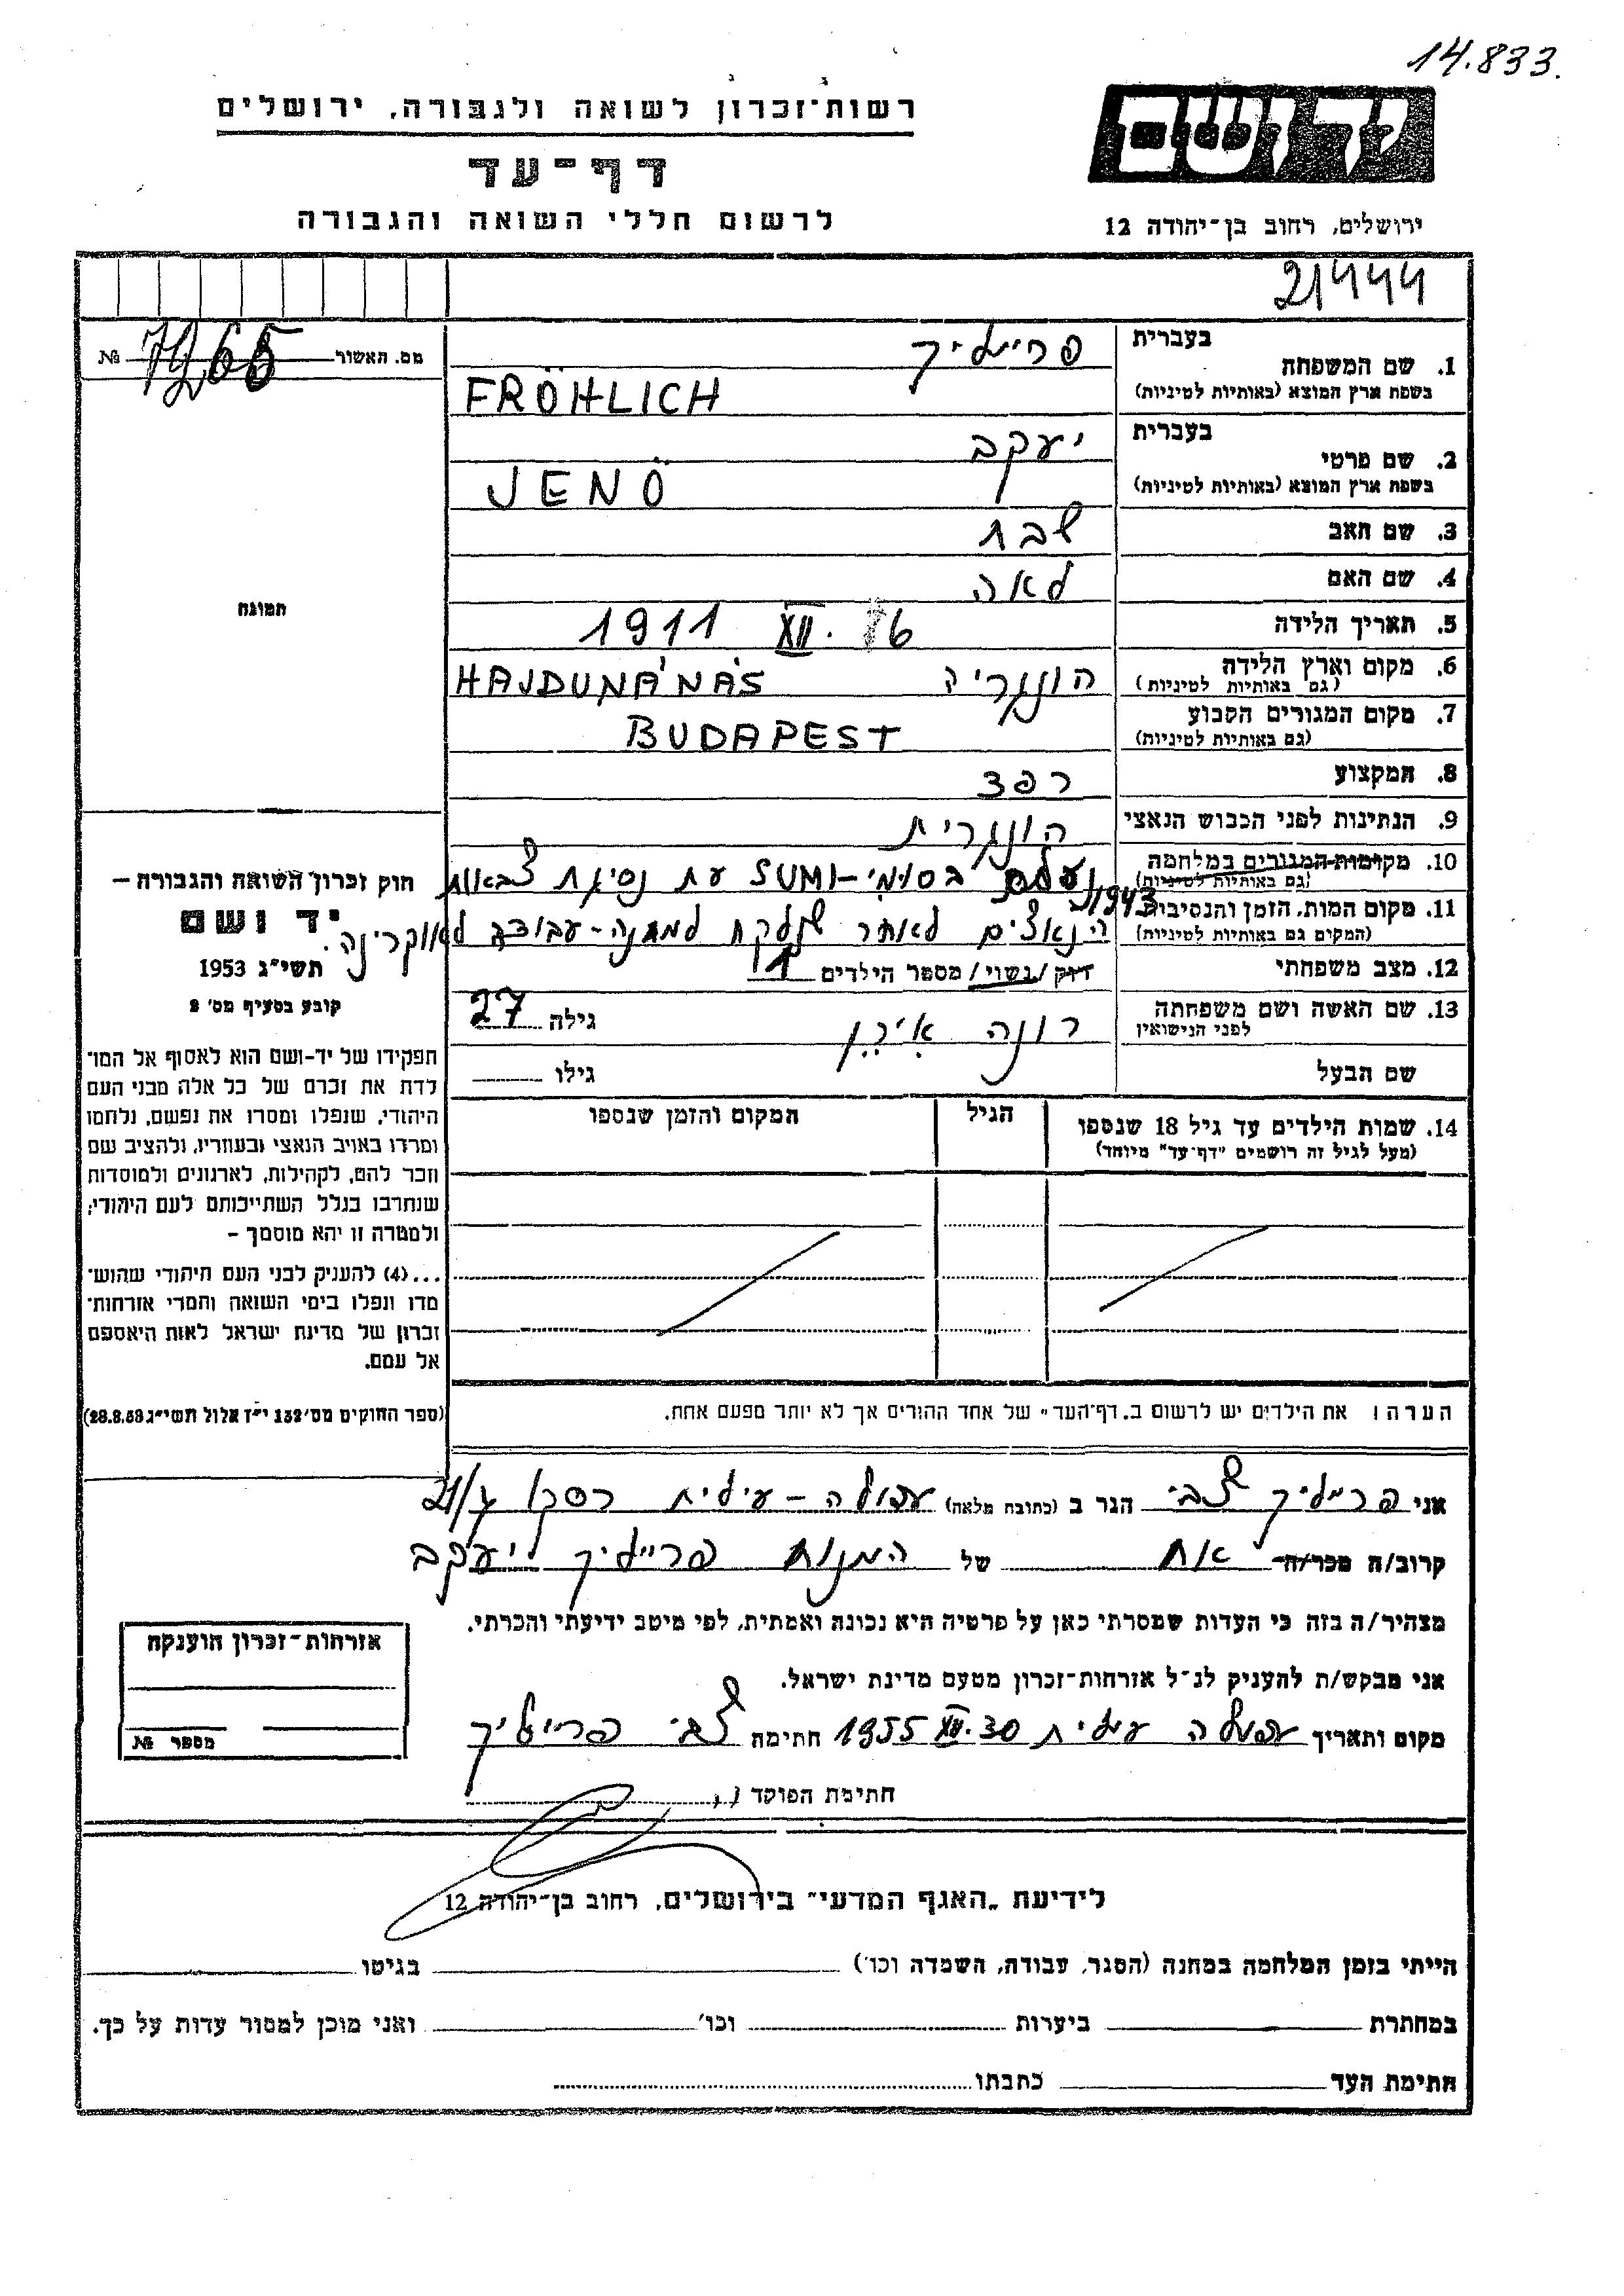 14.833.
רשות־זכרון לשואה ולגבורה, ירושלים
ידושם
דף־עד
לרשום חללי השואה והגבורה
ירושלים, רחוב בן־יהודה 12
21444
מס. האשור № 7265
1. שם המשפחה
בעברית פריילי׳ך
בשפת ארץ המוצא (באותיות לטיניות) FRÖHLICH
2. שם פרטי
בעברית יעקב
בשפת ארץ המוצא (באותיות לטיניות) JENÖ
3. שם האב שבת
4. שם האם לאה
5. תאריך הלידה 16 XII. 1911
6. מקום וארץ הלידה הונגריה HAJDUNÁNÁS
(גם באותיות לטיניות)
7. מקום המגורים הקבוע BUDAPEST
(גם באותיות לטיניות)
8. המקצוע רפד
9. הנתינות לפני הכבוש הנאצי הונגרית
10. מקומות המגורים במלחמה
(גם באותיות לטיניות)
נעלם בסומי-SUMI עת נסיגת צבאות
1943
11. מקום המות, הזמן והנסיבות
(המקום גם באותיות לטיניות)
הנאצים לאחר שנלקח למחנה-עבודה לאוקרינה.
12. מצב משפחתי רוק/נשוי/ מספר הילדים 1
13. שם האשה ושם משפחתה
לפני הנישואין
רונה אירן גילה 27
שם הבעל גילו
14. שמות הילדים עד גיל 18 שנספו
(מעל לגיל זה רושמים "דף־עד" מיוחד)
הגיל
המקום והזמן שנספו
הערה! את הילדים יש לרשום ב„דף־העד" של אחד ההורים אך לא יותר מפעם אחת.
תמונה
חוק זכרון השואה והגבורה –
יד ושם
תשי״ג 1953
קובע בסעיף מס׳ 2
תפקידו של יד-ושם הוא לאסוף אל המו־
לדת את זכרם של כל אלה מבני העם
היהודי, שנפלו ומסרו את נפשם, נלחמו
ומרדו באויב הנאצי ובעוזריו, ולהציב שם
וזכר להם, לקהילות, לארגונים ולמוסדות
שנחרבו בגלל השתייכותם לעם היהודי;
ולמטרה זו יהא מוסמך –
...(4) להעניק לבני העם היהודי שהוש־
מדו ונפלו בימי השואה והמרי אזרחות־
זכרון של מדינת ישראל לאות היאספם
אל עמם.
(ספר החוקים מס׳ 132 י״ז אלול תשי״ג 28.8.53)
אני פריילי׳ך צבי הגר ב (כתובת מלאה) עפולה – עילית רסקו ג/21
קרוב/ה מכר/ה אח של המנוח פריילי׳ך יעקב
מצהיר/ה בזה כי העדות שמסרתי כאן על פרטיה היא נכונה ואמתית, לפי מיטב ידיעתי והכרתי.
אני מבקש/ת להעניק לנ״ל אזרחות־זכרון מטעם מדינת ישראל.
מקום ותאריך עפולה עלית 30.XII 1955 חתימה צבי פריילי׳ך
חתימת הפוקד
אזרחות־זכרון הוענקה
מספר №
לידיעת „האגף המדעי" בירושלים, רחוב בן־יהודה 12
הייתי בזמן המלחמה במחנה (הסגר, עבודה, השמדה וכו׳) בגיטו
במחתרת ביערות וכו׳ ואני מוכן למסור עדות על כך.
חתימת העד כתבתו